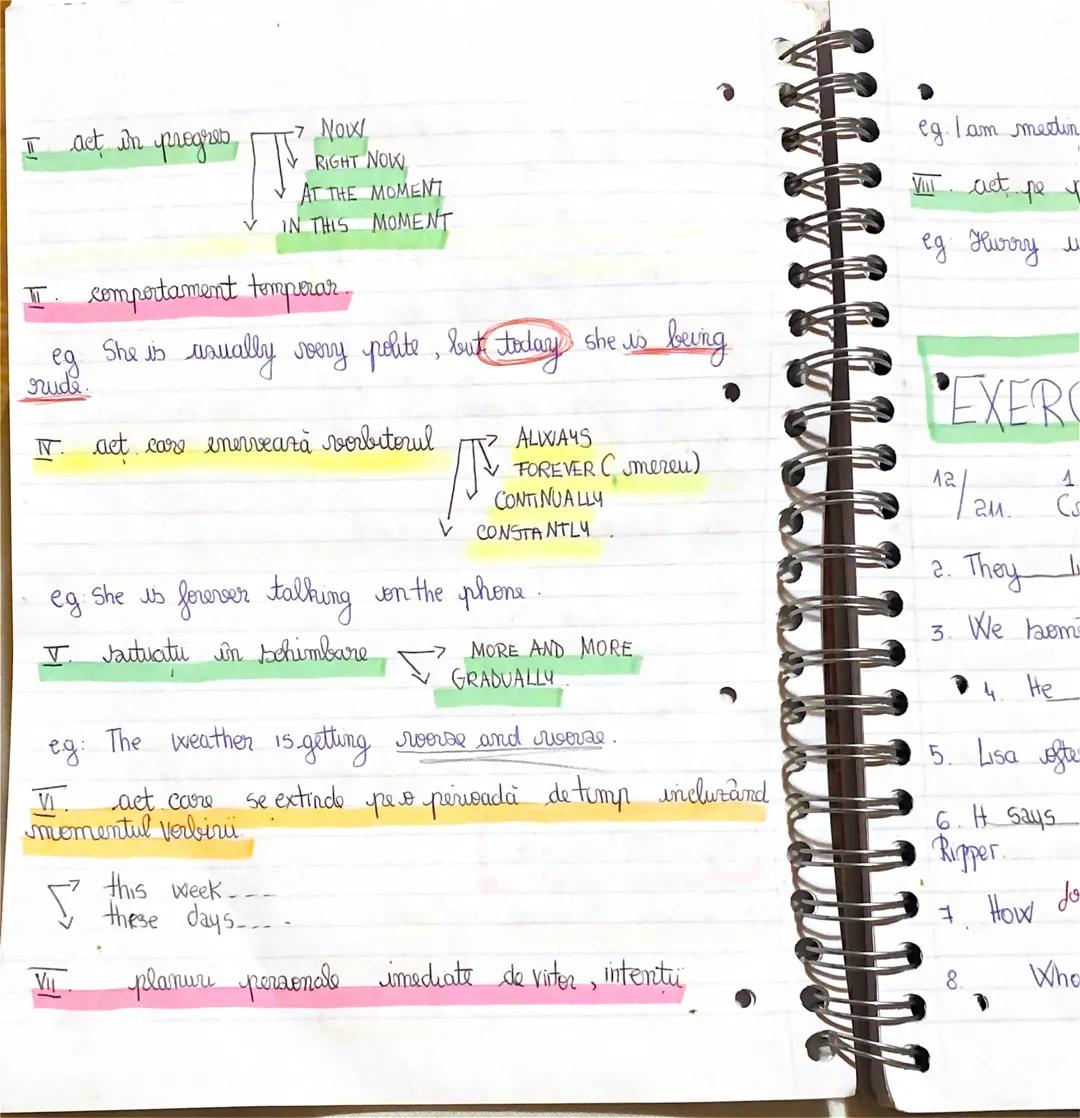 II acț. în progres → NOW
RIGHT NOW
AT THE MOMENT
IN THIS MOMENT
III. comportament temporar.
eg She is usually very polite, but today she is being
rude.
IV. acț. care enervează vorbitorul → ALWAYS
FOREVER (mereu)
CONTINUALLY
CONSTANTLY.
eg: She is forever talking on the phone.
V. situații în schimbare → MORE AND MORE
GRADUALLY.
eg: The weather is getting worse and worse.
VI. acț. care se extinde pe o perioadă de timp incluzând
momentul vorbirii.
this week----
these days----
VII. planuri personale imediate de viitor, intenții
eg. I am meetin
VIII. acț. pe
eg. Hurry u
EXERC
12/211. 1
2. They
3. We
4. He
5. Lisa ofte
6. H says
Ripper.
7. How do
8. Who